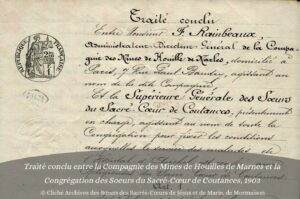 Traité conclu
Entre Monsieur F. Rainbeaux,
Administrateur-Directeur Général de la Compa-
gnie des Mines de Houille de Marles, domicilié à
Paris, 7 Rue Paul Baudry, agissant au
nom de la dite Compagnie,
Et la Supérieure Générale des Sœurs
du Sacré-Cœur de Coutances, présentement
en charge, agissant au nom de toute la
Congrégation pour fixer les conditions
auxquelles le
Art. 1
RÉPUBLIQUE FRANÇAISE
Traité conclu entre la Compagnie des Mines de Houilles de Marnes et la
Congrégation des Soeurs du Sacré-Cœur de Coutances, 1903
© Cliché Archives des Sœurs des Sacrés-Cœurs de Jésus et de Marie, de Mormaison